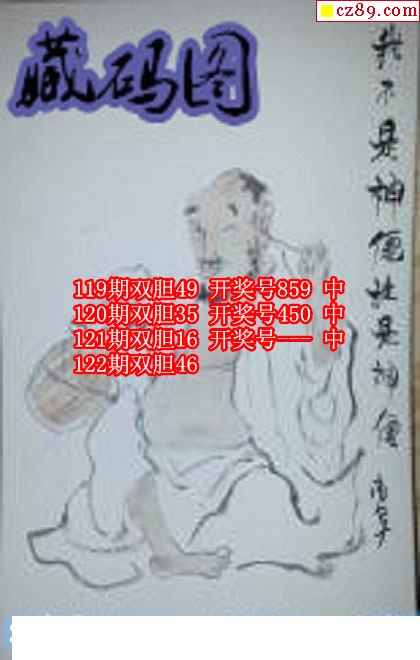 cz89.com
藏码图
我不是神便杜是神便
119期双胆49 开奖号859 中
120期双胆35 开奖号450 中
121期双胆16 开奖号--- 中
122期双胆46